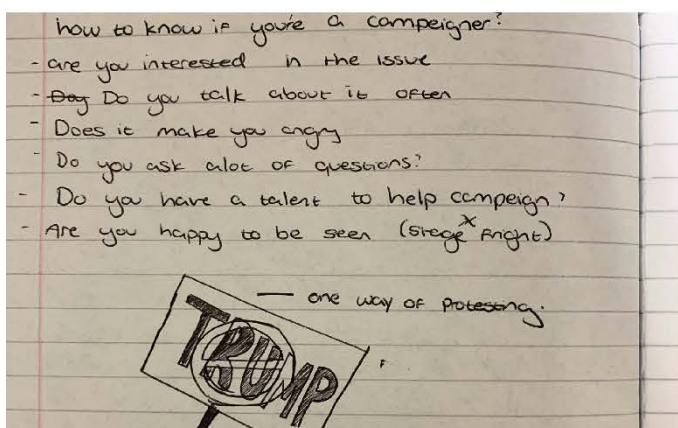 how to know if you're a campeigner?
- are you interested in the issue
- Day Do you talk about it often
- Does it make you angry
- Do you ask alot of questions?
- Do you have a talent to help campeign?
- Are you happy to be seen (stage x fright)
— one way of protesting.
TRUMP